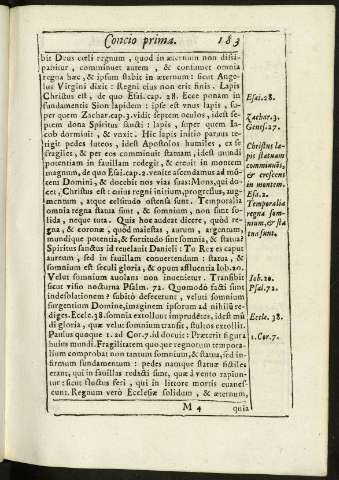 Concio prima. 183
bit Deus cœli regnum, quod in æternum non dissi-
pabitur, comminuet autem, & continuet omnia
regna hæc, & ipsum stabit in æternum: sicut Ange-
lus Virgini dixit: Regni eius non erit finis. Lapis
Christus est, de quo Esai. cap. 28. Ecce ponam in
fundamentis Sion lapidem: ipse est vnus lapis, su-
per quem Zachar. cap. 3. vidit septem oculos, idest se-
ptem dona Spiritus sancti: lapis, super quem Ia-
cob dormiuit, & vnxit. Hic lapis initio paruus te-
rigit pedes luteos, idest Apostolos humiles, ex se
fragiles, & per eos comminuit statuam, idest mundi
potentiam in fauillam redegit, & creuit in montem
magnum, de quo Esai. cap. 2. venite ascendamus ad mõ-
tem Domini, & docebit nos vias suas: Mons, qui do-
cet, Christus est: cuius regni initium, progressus, aug-
mentum, atque celsitudo ostensa sunt. Temporalia
omnia regna statua sunt, & somnium, non sunt so-
lida, neque tuta. Quis hoc audeat dicere, quòd re-
gna, & coronæ, quòd maiestas, aurum, argentum,
mundique potentia, & fortitudo sint somnis, & statua?
Spiritus sanctus id reuelauit Danieli: Tu Rex es caput
aureum, sed in fauillam conuertendum: statua, &
somnium est seculi gloria, & opum affluentia Iob. 20.
Velut somnium auolans non inuenietur. Transibit
sicut visio nocturna Psalm. 72. Quomodo facti sunt
indesolationem? subitò defecerunt, veluti somnium
surgentium Domine, imaginem ipsorum ad nihilũ re-
diges. Eccle. 38. somnia extollunt imprudẽtes, idest mũ-
di gloria, quæ velut somnium transit, stultos extollit.
Paulus quoque 1. ad Cor. 7. id docuit: Præterit figura
huius mundi. Fragilitatem quoque regnorum tempora-
lium comprobat non tantum somnium, & statua, sed in-
firmum fundamentum: pedes namque statuæ fictiles
erant, qui in fauillas redacti sunt, quæ à vento rapiun-
tur: sicut fluctus feri, qui in littore mortis euanes-
cunt. Regnum verò Ecclesiæ solidum, & æternum,
M 4 quia
Esai. 28.
Zachar. 3.
Genes. 27.
Christus la-
pis statuam
comminuit,
& crescens
in montem.
Esa. 2.
Temporalia
regna som-
nium, & sta
tua sunt.
Iob. 20.
Psal. 72.
Eccle. 38.
1. Cor. 7.